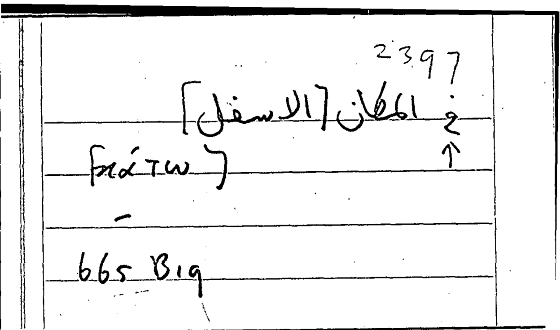 2397
في المكان [الاسفل]
[κάτω]
665 B19